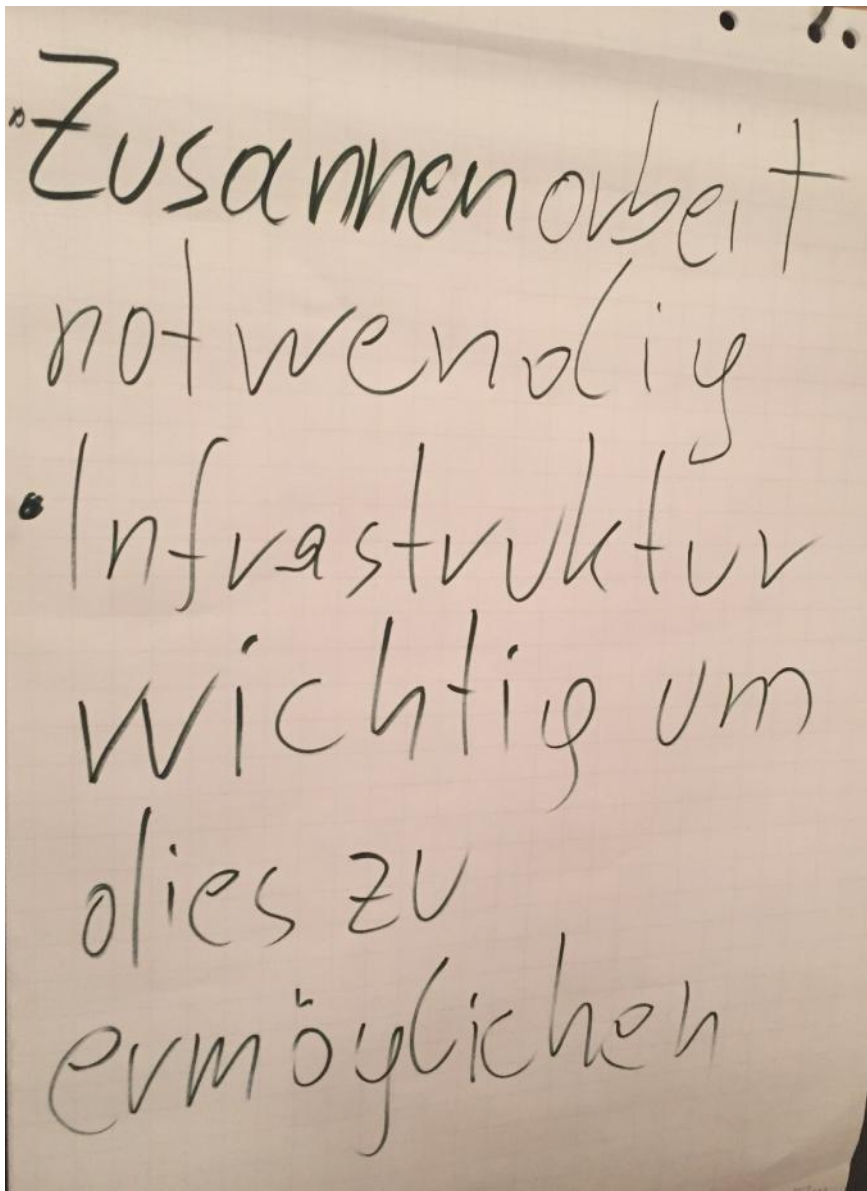 • Zusammenarbeit
notwendig
• Infrastruktur
wichtig um
dies zu
ermöglichen